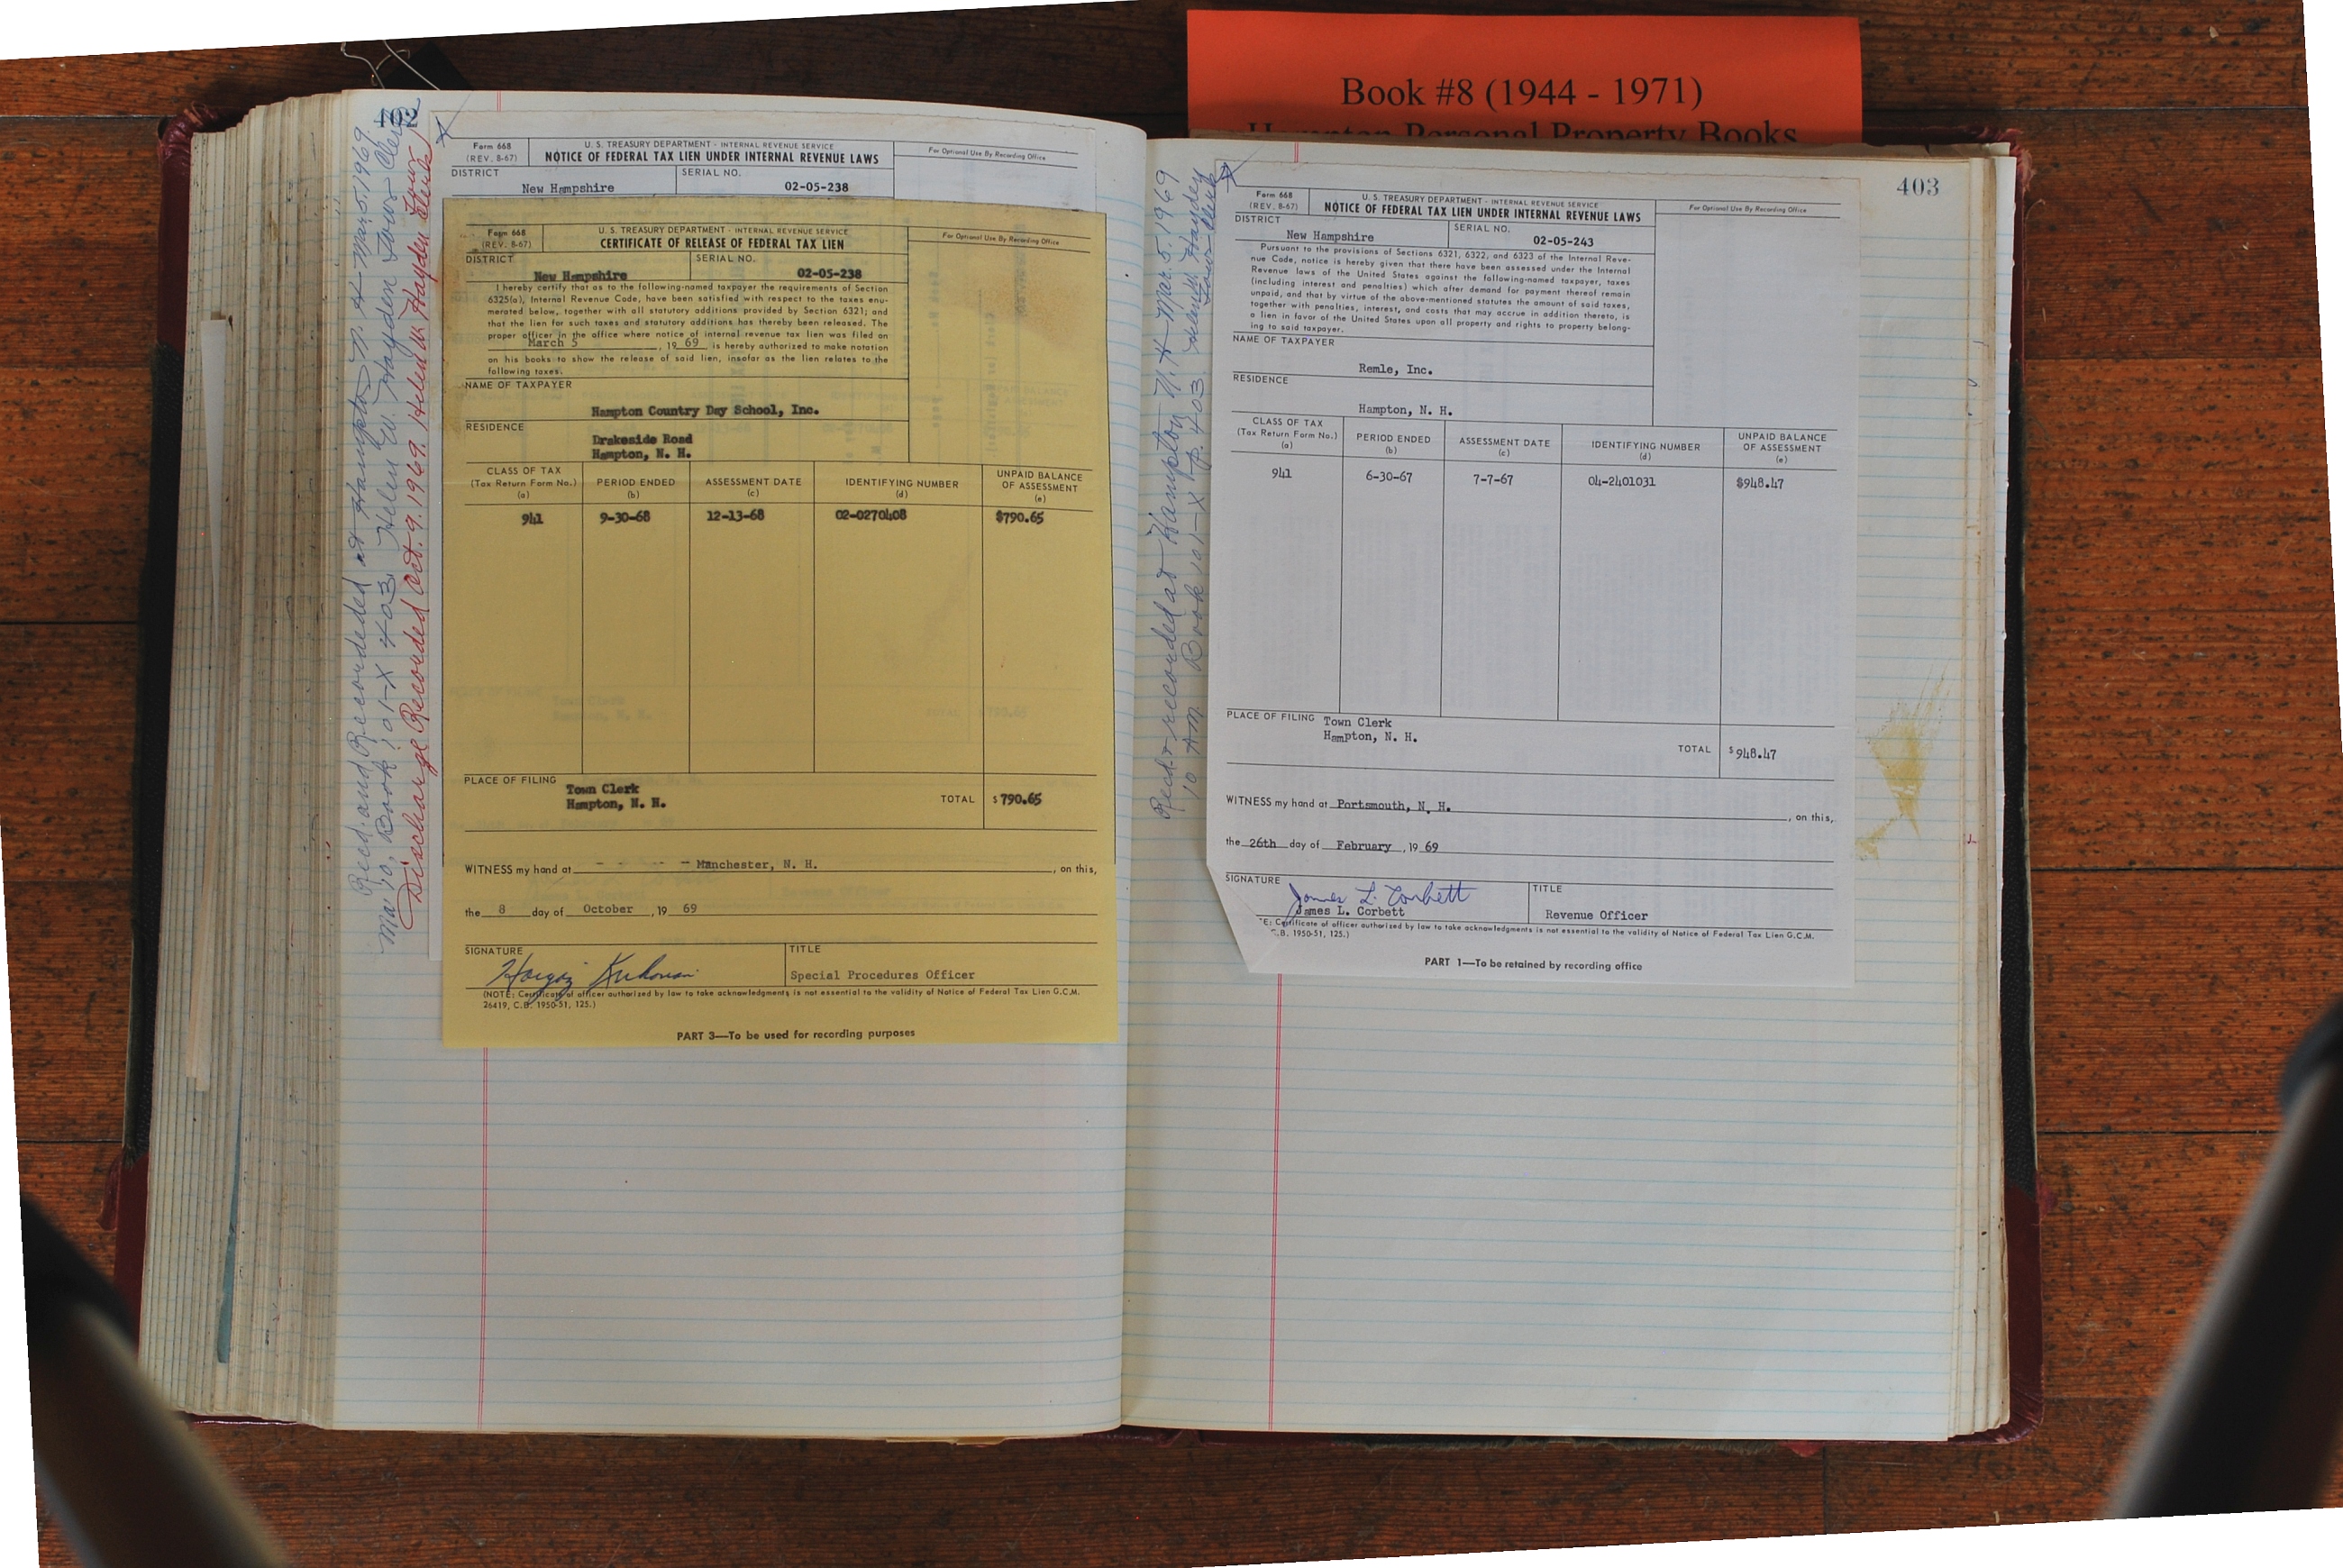 Book #8 (1944 - 1971)
Hampton Personal Property Books
Recd. and Recorded at Hampton N. H. Mar. 5, 1969
Book 101-X 403 Helen W. Hayden Town Clerk
Discharge Recorded Oct. 9. 1969. Helen W. Hayden Town Clerk
Form 668
(REV. 8-67)
U. S. TREASURY DEPARTMENT - INTERNAL REVENUE SERVICE
NOTICE OF FEDERAL TAX LIEN UNDER INTERNAL REVENUE LAWS
For Optional Use By Recording Office
DISTRICT
New Hampshire
SERIAL NO.
02-05-238
Form 668
(REV. 8-67)
U. S. TREASURY DEPARTMENT - INTERNAL REVENUE SERVICE
CERTIFICATE OF RELEASE OF FEDERAL TAX LIEN
For Optional Use By Recording Office
DISTRICT
New Hampshire
SERIAL NO.
02-05-238
I hereby certify that as to the following-named taxpayer the requirements of Section
6325(a), Internal Revenue Code, have been satisfied with respect to the taxes enu-
merated below, together with all statutory additions provided by Section 6321; and
that the lien for such taxes and statutory additions has thereby been released. The
proper officer in the office where notice of internal revenue tax lien was filed on
March 5, 1969 is hereby authorized to make notation
on his books to show the release of said lien, insofar as the lien relates to the
following taxes.
NAME OF TAXPAYER
Hampton Country Day School, Inc.
RESIDENCE
Drakeside Road
Hampton, N. H.
CLASS OF TAX
(Tax Return Form No.)
(a)
PERIOD ENDED
(b)
ASSESSMENT DATE
(c)
IDENTIFYING NUMBER
(d)
UNPAID BALANCE
OF ASSESSMENT
(e)
941 9-30-68 12-13-68 02-0270408 $790.65
PLACE OF FILING
Town Clerk
Hampton, N. H.
TOTAL $ 790.65
WITNESS my hand at Manchester, N. H., on this,
the 8 day of October, 19 69
SIGNATURE
TITLE
Special Procedures Officer
(NOTE: Certificate of officer authorized by law to take acknowledgments is not essential to the validity of Notice of Federal Tax Lien G.C.M.
26419, C.B. 1950-51, 125.)
PART 3—To be used for recording purposes
403
Recd + recorded at Hampton N. H. Mar. 5. 1969
10 AM. Book 101-X P. 403 Helen W. Hayden
Town Clerk
Form 668
(REV. 8-67)
U. S. TREASURY DEPARTMENT - INTERNAL REVENUE SERVICE
NOTICE OF FEDERAL TAX LIEN UNDER INTERNAL REVENUE LAWS
For Optional Use By Recording Office
DISTRICT
New Hampshire
SERIAL NO.
02-05-243
Pursuant to the provisions of Sections 6321, 6322, and 6323 of the Internal Reve-
nue Code, notice is hereby given that there have been assessed under the Internal
Revenue laws of the United States against the following-named taxpayer, taxes
(including interest and penalties) which after demand for payment thereof remain
unpaid, and that by virtue of the above-mentioned statutes the amount of said taxes,
together with penalties, interest, and costs that may accrue in addition thereto, is
a lien in favor of the United States upon all property and rights to property belong-
ing to said taxpayer.
NAME OF TAXPAYER
Remle, Inc.
RESIDENCE
Hampton, N. H.
CLASS OF TAX
(Tax Return Form No.)
(a)
PERIOD ENDED
(b)
ASSESSMENT DATE
(c)
IDENTIFYING NUMBER
(d)
UNPAID BALANCE
OF ASSESSMENT
(e)
941 6-30-67 7-7-67 04-2401031 $948.47
PLACE OF FILING
Town Clerk
Hampton, N. H.
TOTAL $ 948.47
WITNESS my hand at Portsmouth, N. H., on this,
the 26th day of February, 19 69
SIGNATURE
James L. Corbett
James L. Corbett
TITLE
Revenue Officer
E: Certificate of officer authorized by law to take acknowledgments is not essential to the validity of Notice of Federal Tax Lien G.C.M.
C.B. 1950-51, 125.)
PART 1—To be retained by recording office